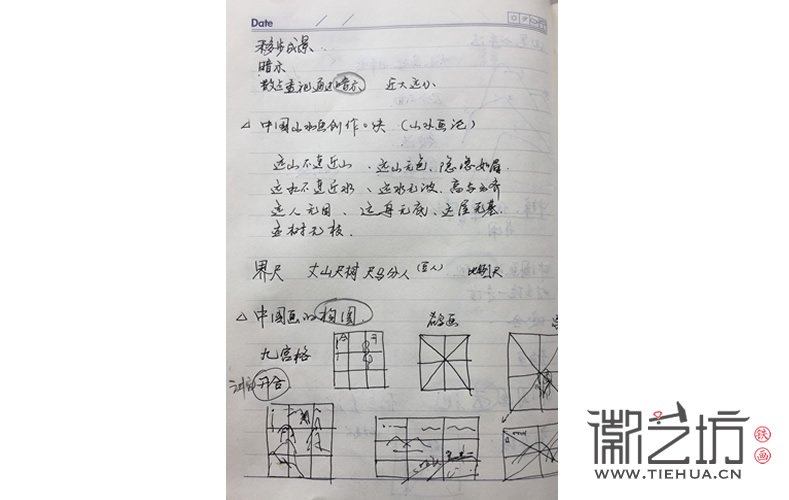 Date
移步成景
暗示
散点透视 通过暗示 近大远小
△ 中国山水画创作口诀 (山水画论)
远山不连近山、远山无色、隐隐如眉
远水不连近水、远水无波、高与云齐
远人无目、远舟无底、远屋无基
远树无枝
界尺 丈山尺树 尺马分人 (豆人) 比例尺
△ 中国画的构图
九宫格
开合
徽艺坊
铁画
WWW.TIEHUA.CN